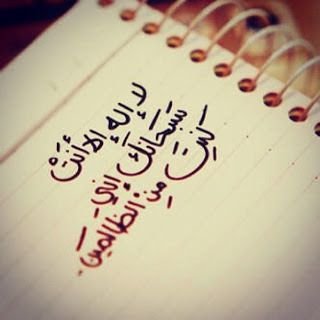 لا إله إلا أنت
سبحانك إني
كنت من الظالمين